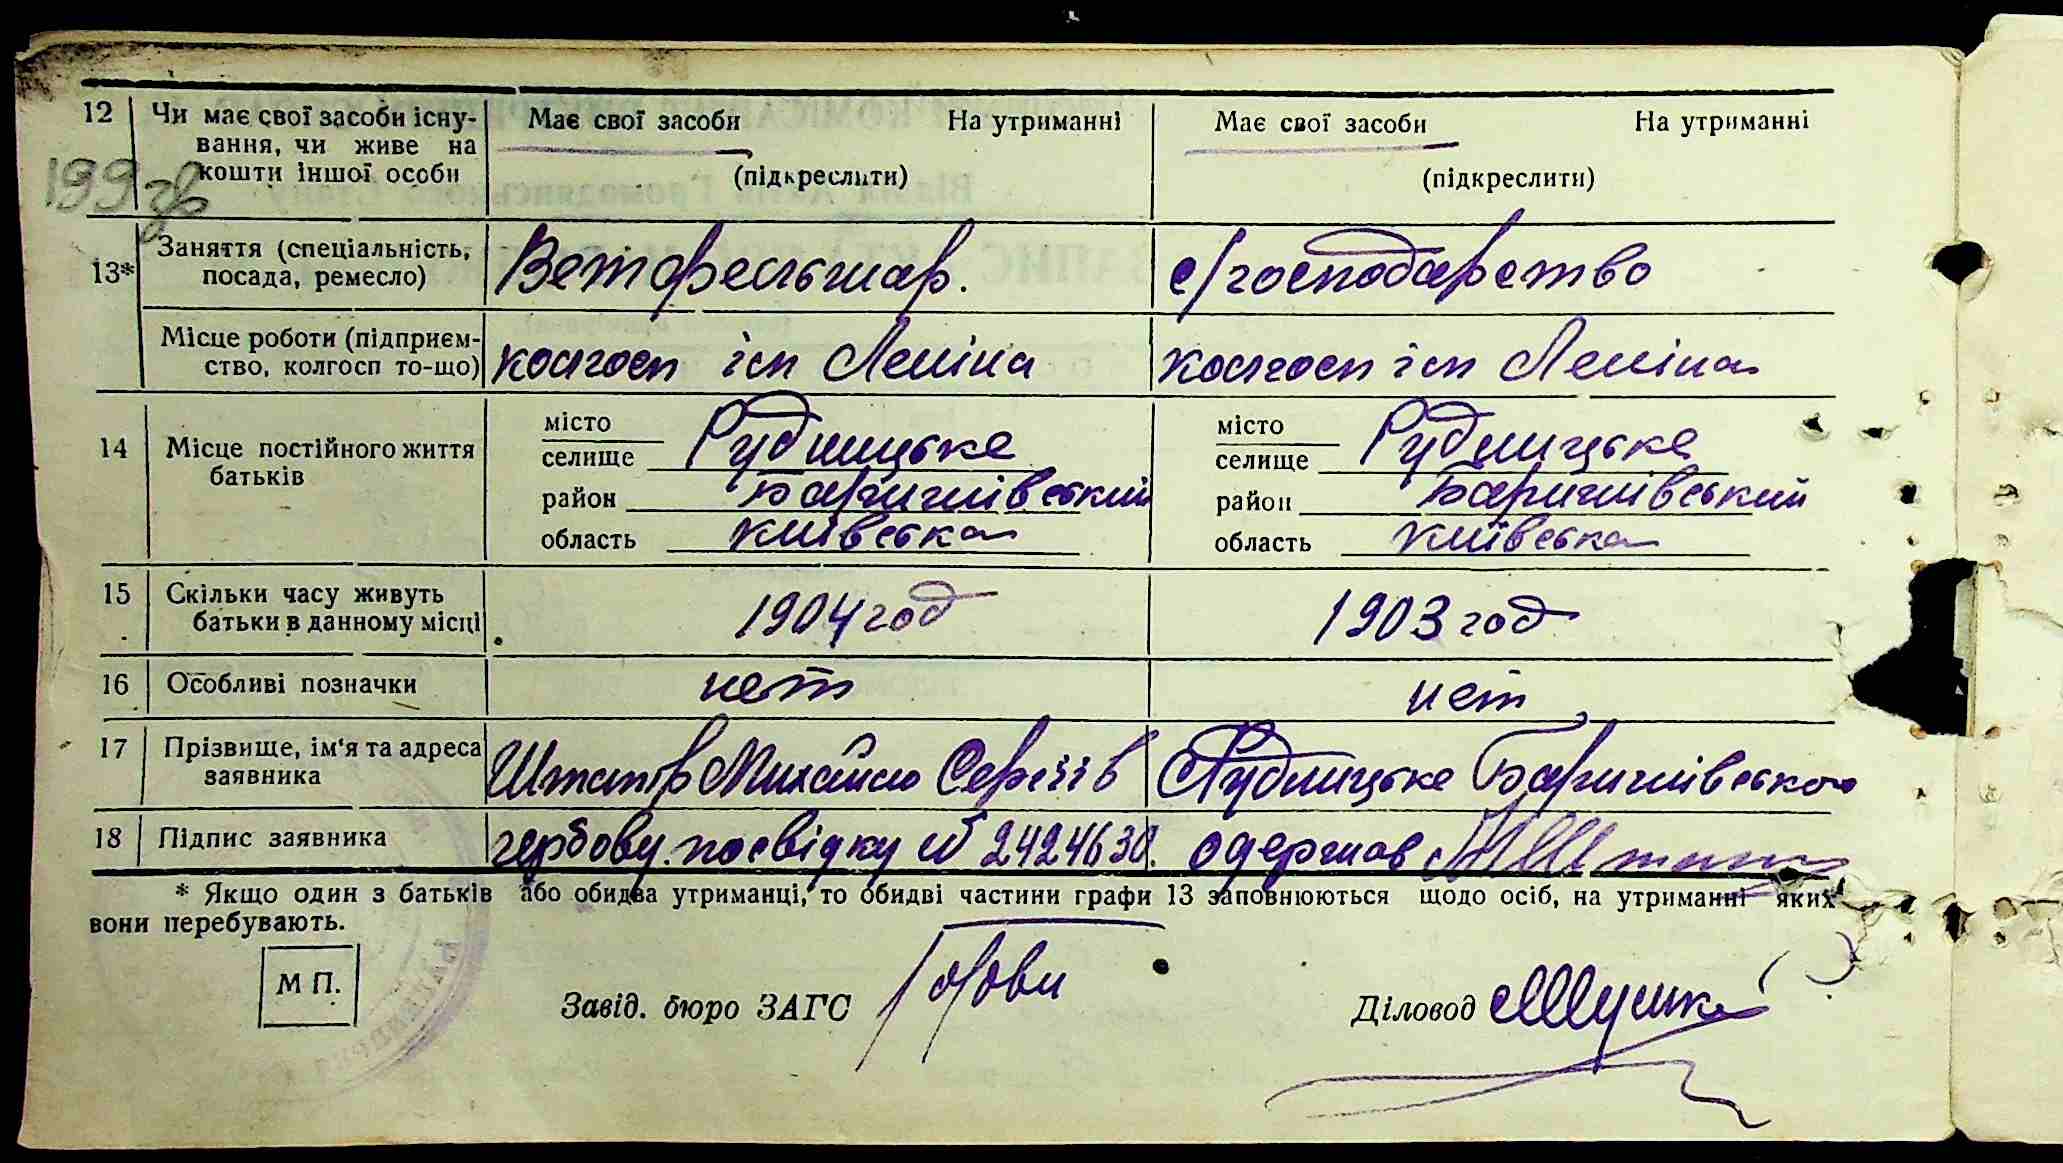 12 Чи має свої засоби існу- Має свої засоби На утриманні Має свої засоби На утриманні
вання, чи живе на
кошти іншої особи (підкреслити) (підкреслити)
199 зв
13* Заняття (спеціальність, Ветфельшар. с/господарство
посада, ремесло)
Місце роботи (підприєм- колгосп ім Леніна колгосп ім Леніна
ство, колгосп то-що)
14 Місце постійного життя місто Рудницьке місто Рудницьке
батьків селище селище
район Баришівський район Баришівський
область київська область київська
15 Скільки часу живуть 1904 год 1903 год
батьки в данному місці
16 Особливі позначки нет нет
17 Прізвище, ім'я та адреса Михайло Сергіїв Рудницьке Баришівсько
заявника
18 Підпис заявника гербову посвідку № 2424630. одержав
* Якщо один з батьків або обидва утриманці, то обидві частини графи 13 заповнюються щодо осіб, на утриманні яких
вони перебувають.
М П. Завід. бюро ЗАГС Діловод